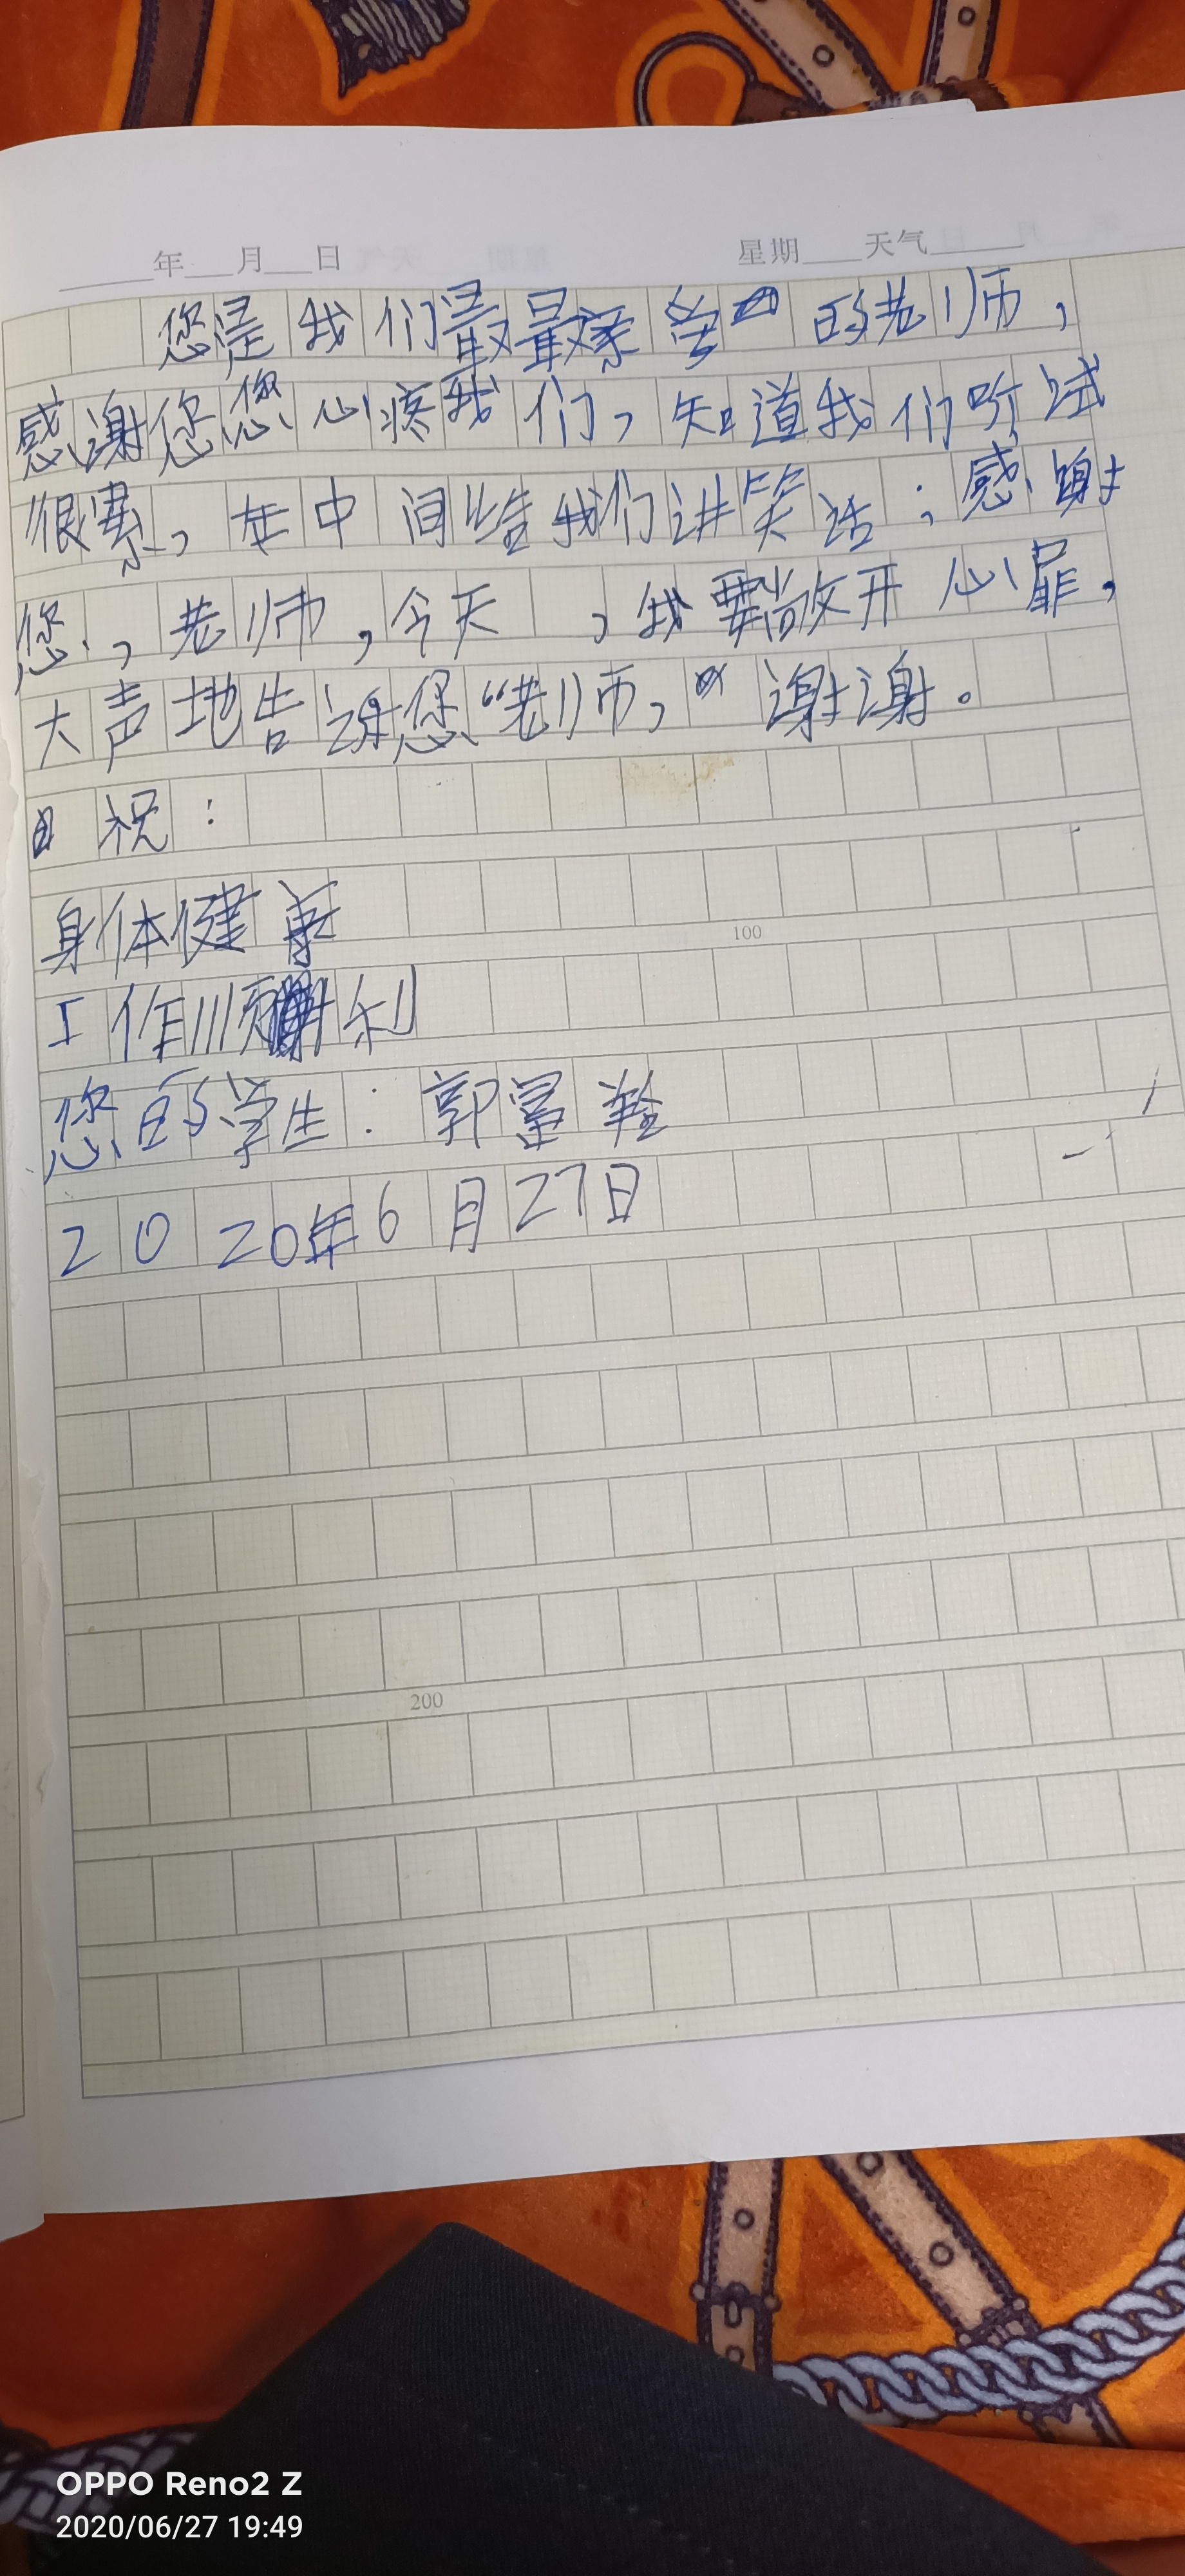 年 月 日 星期 天气
您是我们最最亲的老师，
感谢您您心疼我们，知道我们听试
很累，在中间给我们讲笑话；感谢
您，老师，今天，我要敞开心扉，
大声地告谢您“老师，”谢谢。
祝：
身体健康
100
工作顺利
您的学生：郭富
2020年6月27日
200
OPPO Reno2 Z
2020/06/27 19:49